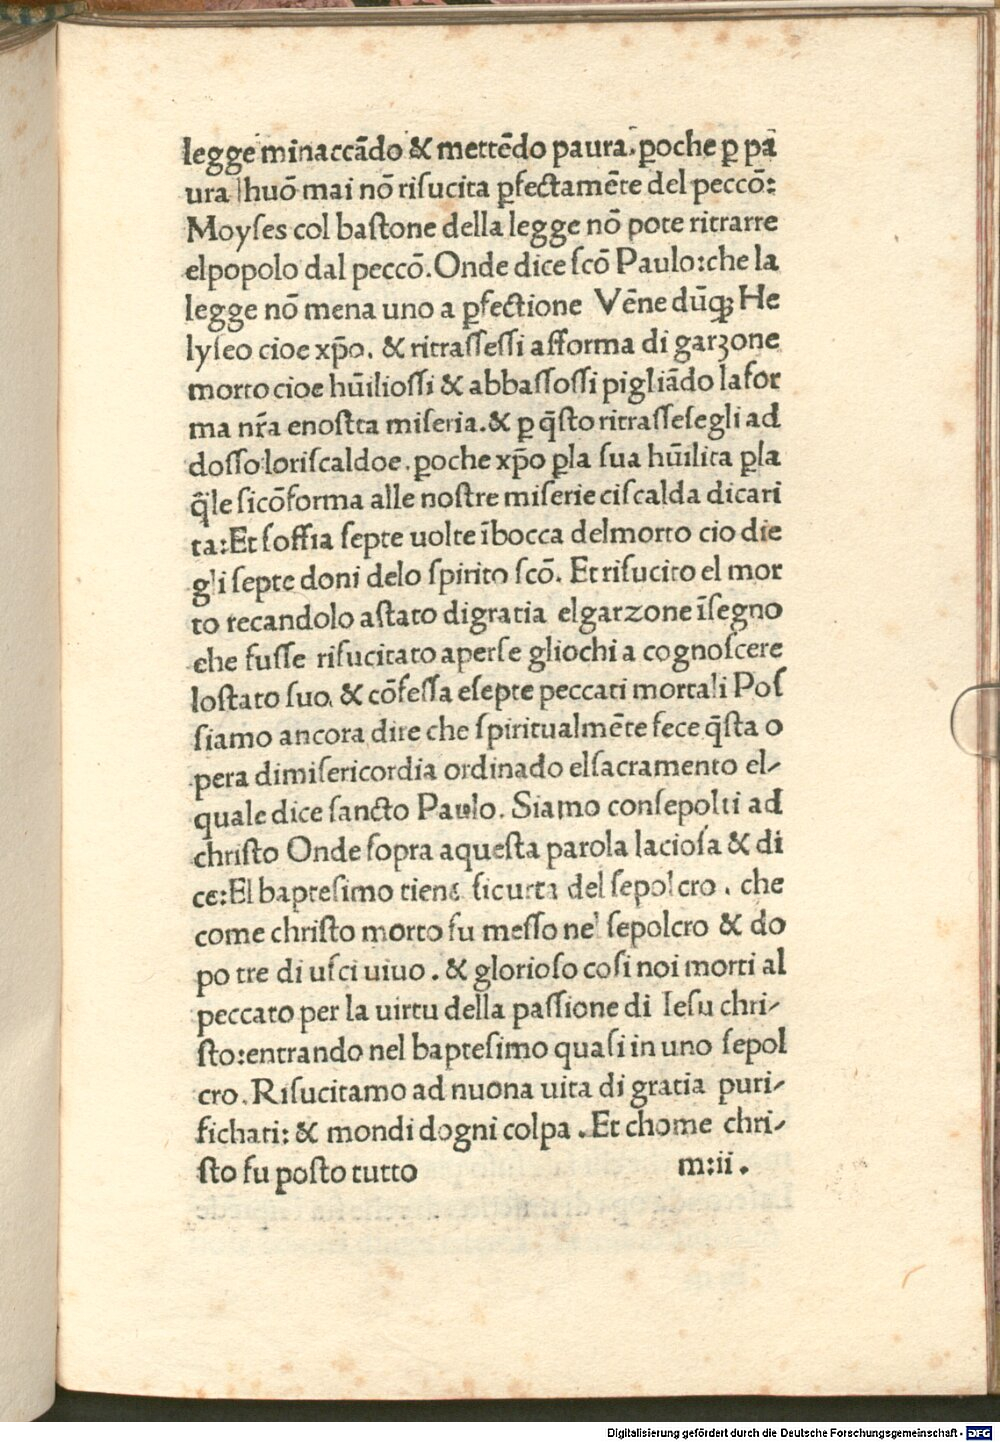 legge minaccãdo & mettẽdo paura. ꝑoche ꝑ pa
ura lhuõ mai nõ riſucita ꝑfectamẽte del peccõ:
Moyſes col baſtone della legge nõ pote ritrarre
elpopolo dal peccõ. Onde dice ſcõ Paulo:che la
legge nõ mena uno a ꝑfectione Vẽne dũqꝫ He
lyſeo cioe xp̃o. & ritraſſeſſi afforma di garzone
morto cioe hũilioſſi & abbaſſoſſi pigliãdo lafor
ma nr̃a enoſtta miſeria. & ꝑ q̃ſto ritraſſeſegli ad
doſſo loriſcaldoe. ꝑoche xp̃o ꝑla ſua hũilita ꝑla
q̃le ſicõforma alle noſtre miſerie ciſcalda dicari
ta:Et ſoffia ſepte uolte ĩbocca delmorto cio die
gli ſepte doni delo ſpirito ſcõ. Et riſucito el mor
to recandolo aſtato digratia elgarzone ĩſegno
che fuſſe riſucitato aperſe gliochi a cognoſcere
loſtato ſuo. & cõfeſſa eſepte peccati mortali Poſ
ſiamo ancora dire che ſpiritualmẽte fece q̃ſta o
pera dimiſericordia ordinado elſacramento el-
quale dice ſancto Paulo. Siamo conſepolti ad
chriſto Onde ſopra aqueſta parola lacioſa & di
ce:El bapteſimo tiene ſicurta del ſepolcro. che
come chriſto morto fu meſſo nel ſepolcro & do
po tre di uſci uiuo. & glorioſo coſi noi morti al
peccato per la uirtu della paſſione di Ieſu chri-
ſto:entrando nel bapteſimo quaſi in uno ſepol
cro. Riſucitamo ad nuona uita di gratia puri-
fichati: & mondi dogni colpa. Et chome chri-
ſto fu poſto tutto m:ii.
Digitalisierung gefördert durch die Deutsche Forschungsgemeinschaft - DFG